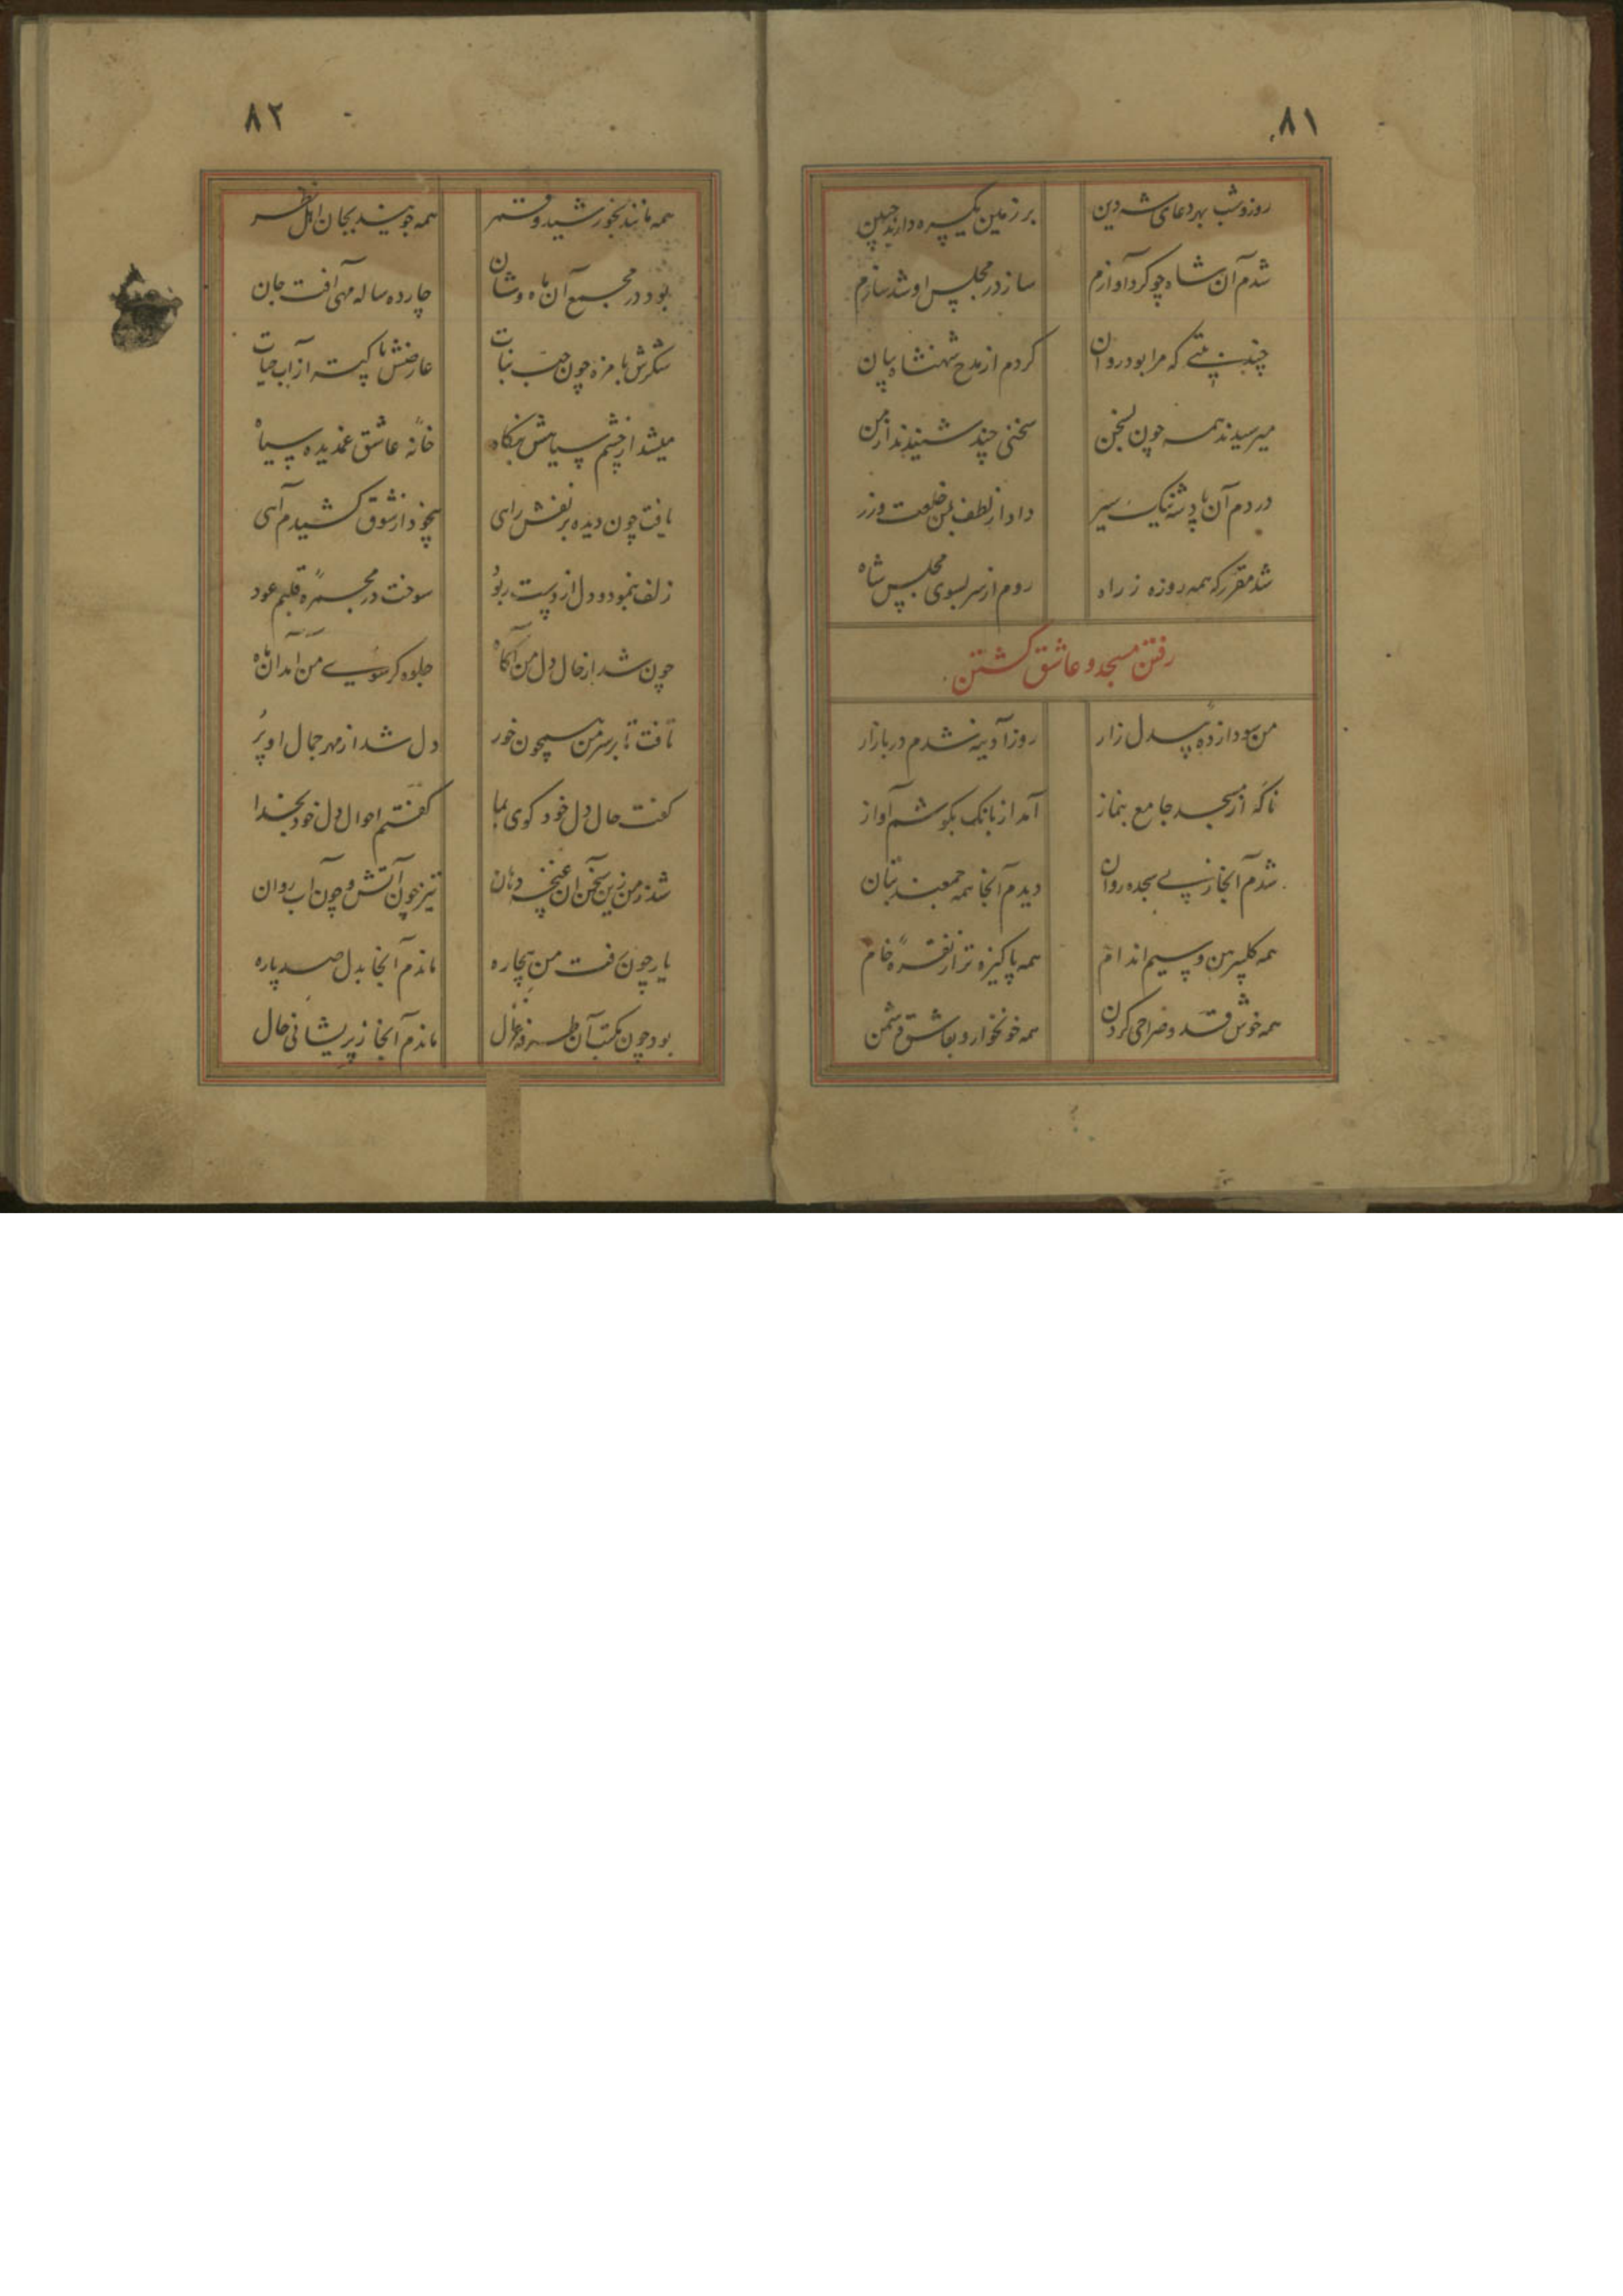 ۸۱
روز و شب بهر دعای شه دین
بر زمین یکسره دارند جبین
شدم آن شاه چو کرد آوازم
ساز در مجلس او شد سازم
چند بیتی که مرا بود روان
کردم از مدح شهنشاه بیان
میرسیدند همه چون بسخن
سخنی چند شنیدند از من
در دم آن پادشه نیک سیر
داد از لطف بمن خلعت و زر
شد مقرر که همه روزه ز راه
روم از سر بسوی مجلس شاه
رفتن مسجد و عاشق گشتن
من سودازده بیدل زار
روز آدینه شدم در بازار
ناگه از مسجد جامع بنماز
آمد از بانک بکوشم آواز
شدم آنجا ز پی سجده روان
دیدم آنجا همه جمعند بتان
همه گلپیرهن و سیم اندام
همه پاکیزه تر از نقرهٔ خام
همه خوش قد و صراحی گردن
همه خونخوار و بعاشق دشمن
۸۲
همه مانند بخورشید و قمر
همه جویند بجان اهل نظر
بود در مجمع آن ماه وشان
چارده ساله مهی آفت جان
شکرش با مزه چون حب نبات
عارضش پاکتر از آب حیات
میشد از چشم سیاهش بنگاه
خانه عاشق غمدیده سیاه
یافت چون دیده بر نفش راهی
بیخود از شوق کشیدم آهی
زلف بنمود و دل از دست ربود
سوخت در مجمرهٔ قلبم عود
چون شد از حال دل من آگاه
جلوه گر سوی من آمد آن ماه
تافت تا بر سر من همچون خور
دل شد از مهر جمال او پر
گفت حال دل خود گوی بما
گفتم احوال دل خود بخدا
شد ز من زین سخن آن غنچه دهان
تیز چون آتش و چون آب روان
یار چون رفت من بیچاره
ماندم آنجا بدل صد پاره
بود چون مکتب آن طرفه غزال
ماندم آنجا ز پریشانی حال